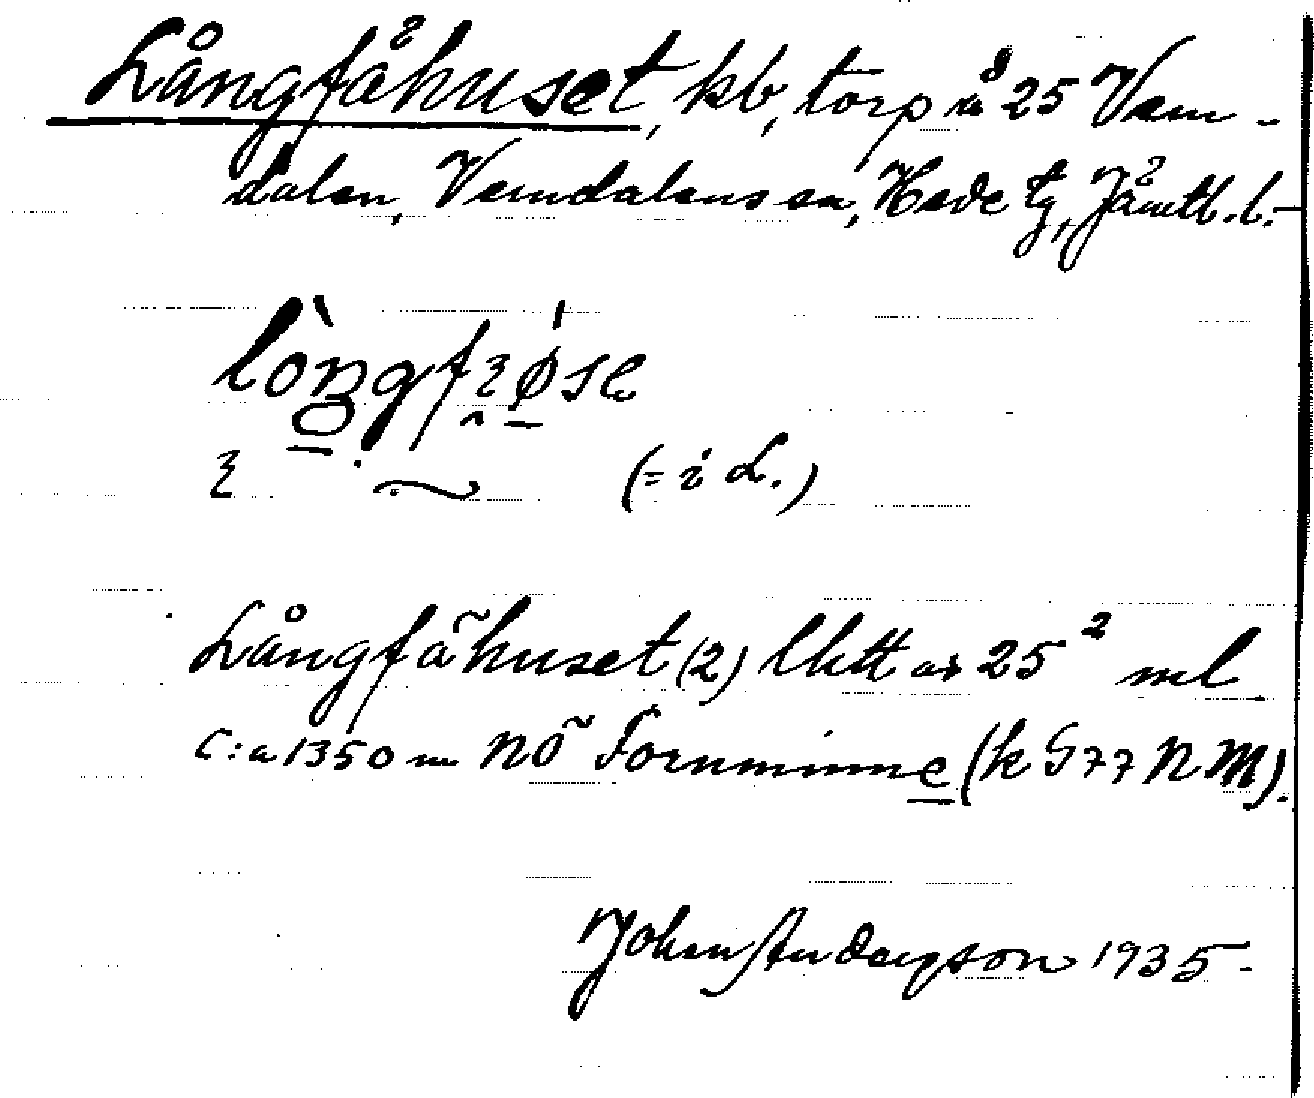 Långfåhuset, kb, torp å 25 Vem-
dalen, Vemdalens sn, Hede tg, Jämtl. l.
(= i L.)
Långfåhuset (2) 25² ml
c:a 1350 m NÖ Fornminne (k 577 NM).
Johan Anderson 1935.